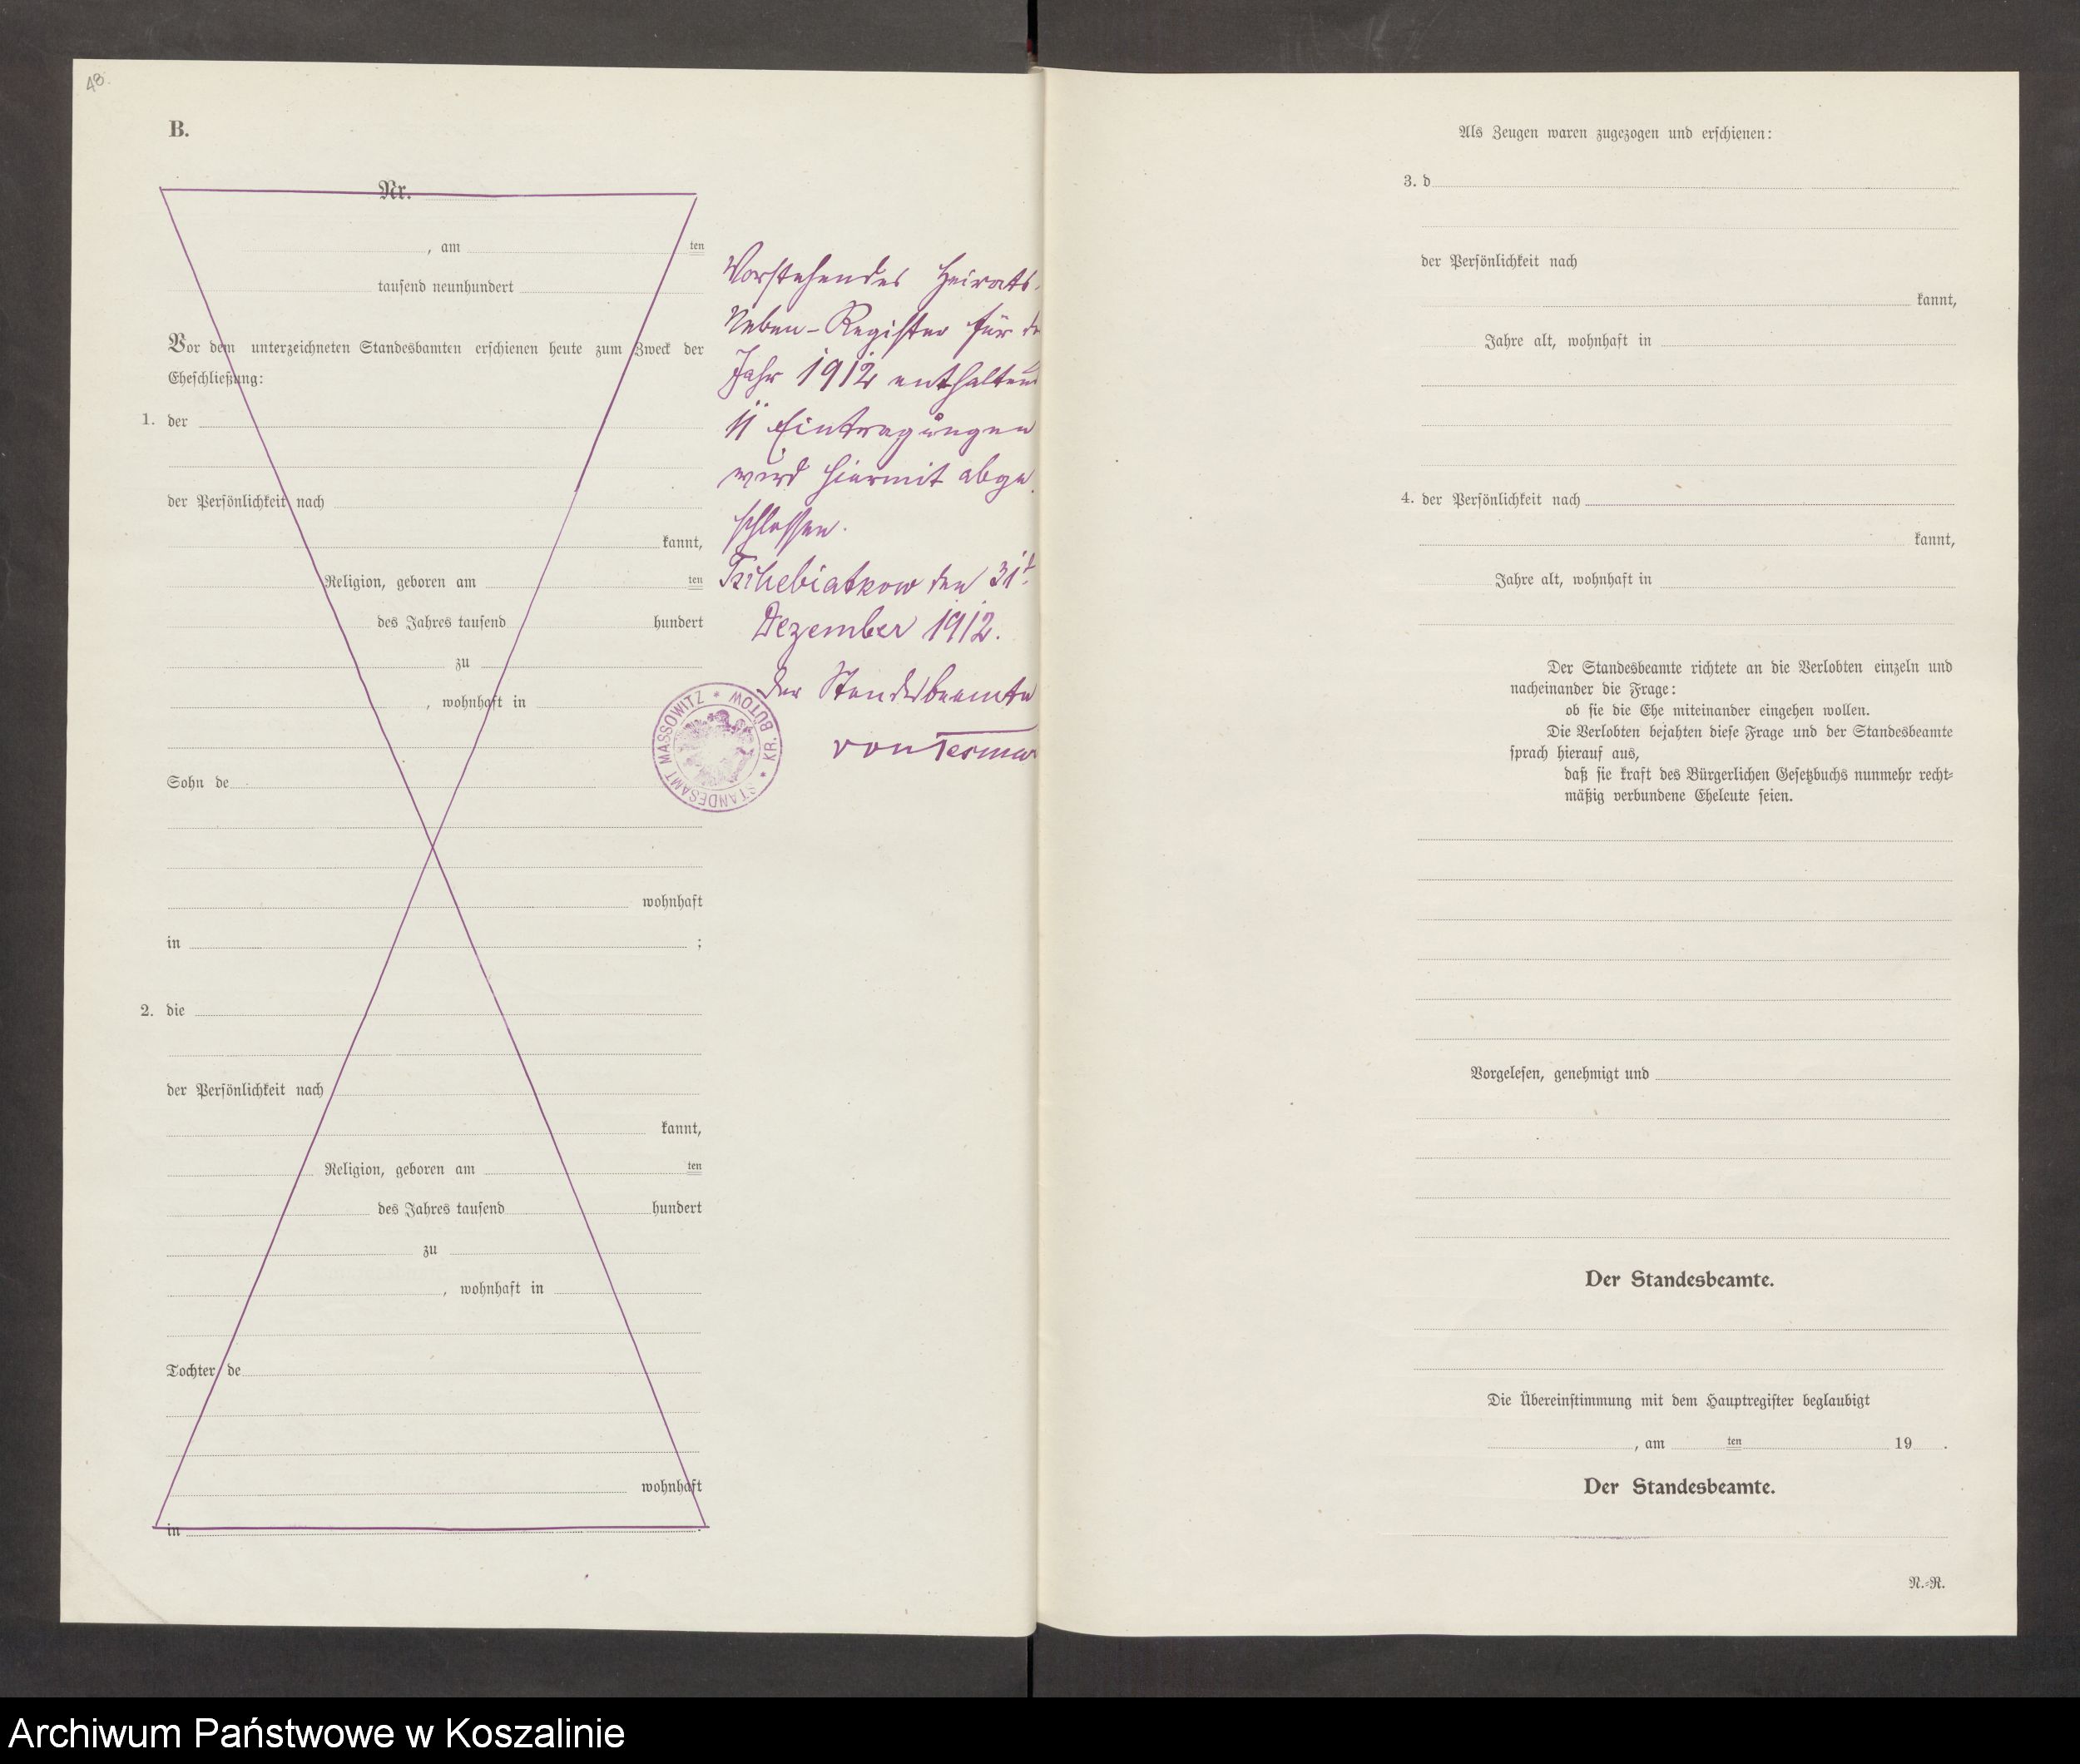 48.
B.
Nr.
, am ten
tausend neunhundert
Vor dem unterzeichneten Standesbamten erschienen heute zum Zweck der
Eheschließung:
1. der
der Persönlichkeit nach
kannt,
Religion, geboren am ten
des Jahres tausend hundert
zu
, wohnhaft in
Sohn de
wohnhaft
in ;
2. die
der Persönlichkeit nach
kannt,
Religion, geboren am ten
des Jahres tausend hundert
zu
, wohnhaft in
Tochter de
wohnhaft
in .
Vorstehendes Heirats-
Neben-Register für
Jahr 1912 enthaltend
11 Eintragungen
wird hiermit abge
schlossen.
Tschebiatkow den 31t.
Dezember 1912.
Der Standesbeamte
von
STANDESAMT MASSOWITZ * KR. BÜTOW *
Als Zeugen waren zugezogen und erschienen:
3. d
der Persönlichkeit nach
kannt,
Jahre alt, wohnhaft in
4. der Persönlichkeit nach
kannt,
Jahre alt, wohnhaft in
Der Standesbeamte richtete an die Verlobten einzeln und
nacheinander die Frage:
ob sie die Ehe miteinander eingehen wollen.
Die Verlobten bejahten diese Frage und der Standesbeamte
sprach hierauf aus,
daß sie kraft des Bürgerlichen Gesetzbuchs nunmehr recht-
mäßig verbundene Eheleute seien.
Vorgelesen, genehmigt und
Der Standesbeamte.
Die Übereinstimmung mit dem Hauptregister beglaubigt
, am ten 19 .
Der Standesbeamte.
N.-R.
Archiwum Państwowe w Koszalinie